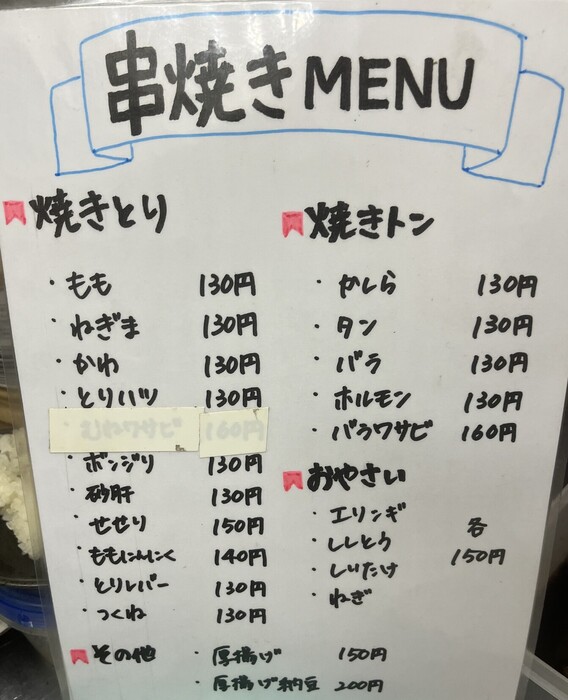 串焼きMENU
焼きとり
・もも 130円
・ねぎま 130円
・かわ 130円
・とりハツ 130円
・むねワサビ 160円
・ボンジリ 130円
・砂肝 130円
・せせり 150円
・ももにんにく 140円
・とりレバー 130円
・つくね 130円
焼きトン
・かしら 130円
・タン 130円
・バラ 130円
・ホルモン 130円
・バラワサビ 160円
おやさい
・エリンギ
・ししとう
・しいたけ
・ねぎ
各
150円
その他
・厚揚げ 150円
・厚揚げ納豆 200円